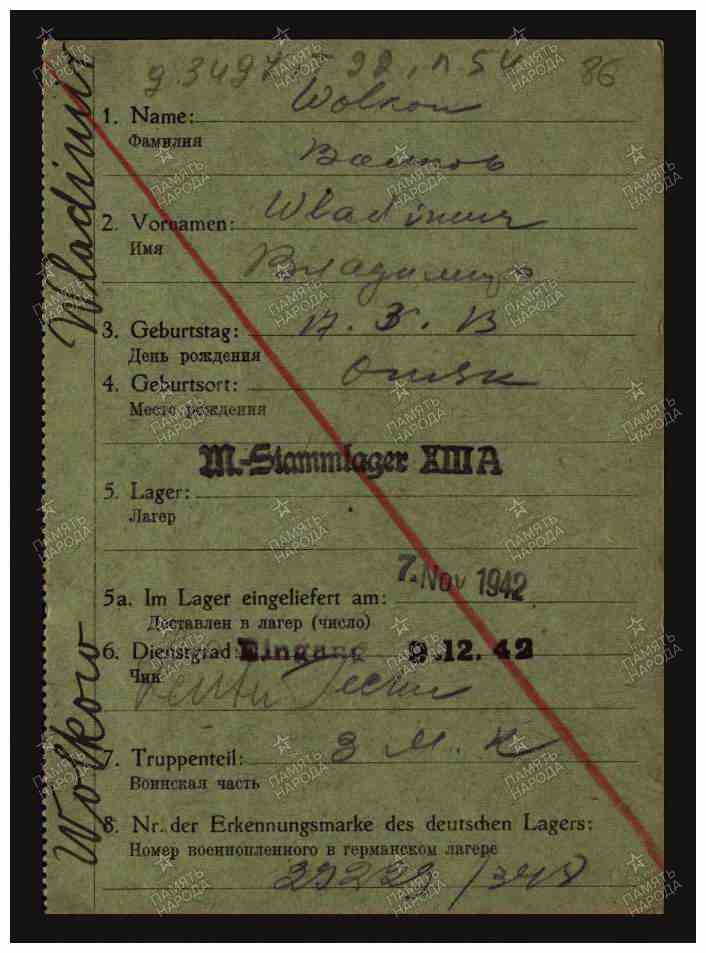 86
1. Name: Wolkow
Фамилия
Волков
2. Vornamen: Wladimir
Имя
Владимир
3. Geburtstag:
День рождения
4. Geburtsort: Омск
Место рождения
M.-Stammlager XIII A
5. Lager:
Лагер
7. Nov 1942
5a. Im Lager eingeliefert am:
Доставлен в лагер (число)
6. Dienstgrad: Eingang 9.12.42
Чин
7. Truppenteil:
Воинская часть
8. Nr. der Erkennungsmarke des deutschen Lagers:
Номер военнопленного в германском лагере
Wolkow Wladimir
ПАМЯТЬ НАРОДА